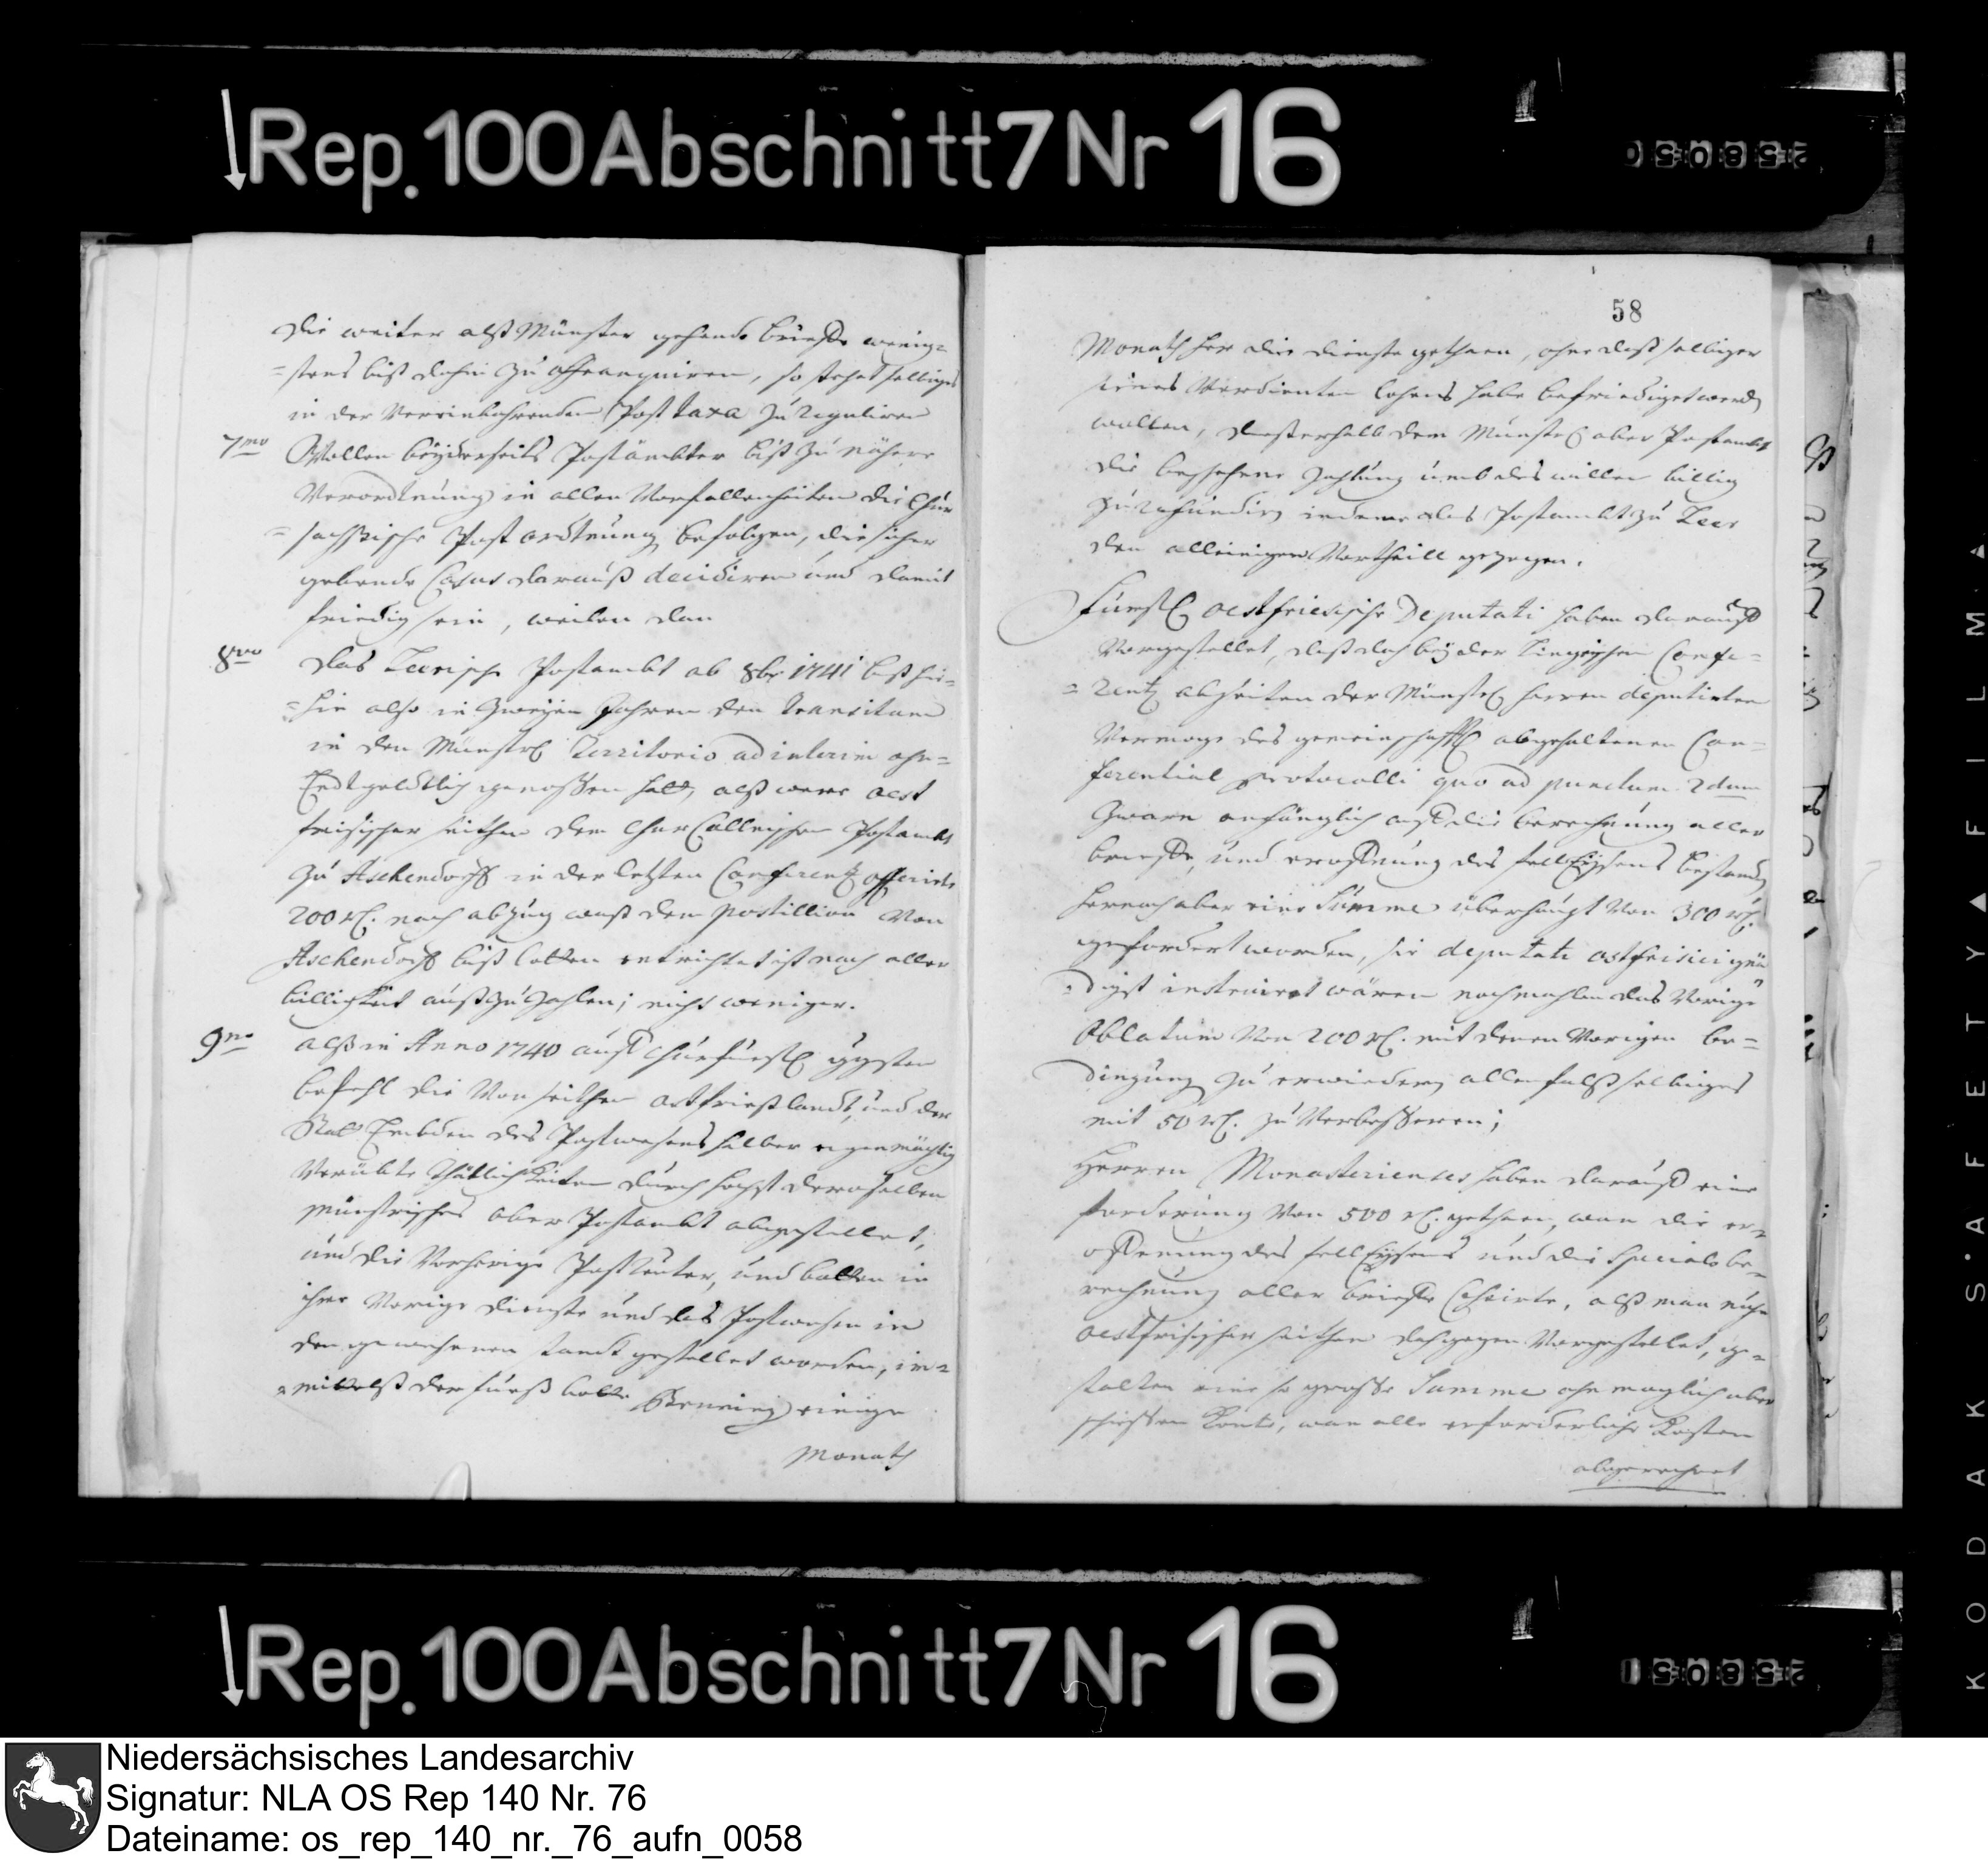 Rep. 100 Abschnitt 7 Nr 16
258050
die weiter alß Münster gehende briefe wenig=
=stens biß dahin zu affranquiren, so stehet selbiges
in der Vereinbahrenden Post taxa zu reguliren
7mo Wollen beyderseits Postämbter biß zu nähere
Verordtnung in allen Vorfallenheiten die Chur
=sachsische Post ordtnung befolgen, die sicher
gebende Casus darauß decidiren und damit
friedig sein, weilen dan
8vo das Leerische Postambt ab 8br 1741 biß hie=
=hin also in Zweyen Jahren den transitum
in den Münstrl Territorio ad interim ohn=
Endtgeldtlich genossen hatt, alß were oest
frisischer seithen dem Chur Collnischen Postambt
zu Aschendorff in der letzten Conferentz offerirte
200 rl. nach abzug waß dem postillion von
Aschendorff biß latten entrichtet ist nach aller
billigkeit außzuzahlen; nicht weniger.
9no alß in Anno 1740 auff Churfürstl ggsten
befehl die Von seithen ostfrießlandt, und der
Statt Embden des Postwesens halber eigenmächtig
Verübte thätlichkeiten durch höchst deroselben
münstrisches ober Postambt abgestellet,
und die Vorherige Postreuter, und botten in
ihre Vorige dienste und das Postwesen in
den gewesenen standt gestellet worden, in=
=mittelß der fueß botte Henning einige
Monath
58
Monath her die dienste gethaen, ohne daß selbiger
seines Verdienten lohens habe befriediget werden
wollen, diesterhalb dem Münstrl ober Postambt
die beschehene Zahlung umb des willen billig
zu refundiren indeme das Postambt zu Leer
den alleinigen Vortheill gezogen.
Fürstl oestfriesische Deputati haben darauff
Vorgestellet, daß doch bey der Lingischen Confe=
=rentz abseiten der Münstrl herren deputirten
Vermoge des gemeinschafftl abgehaltenen Con=
ferential protocolli quo ad punctum 2dum
Zwarn anfänglich auff die berechnung aller
briefe, und eroffnung des felleysens bestanden
hernach aber eine Summe überhaupt Von 300 rl.
gefordert worden, sie deputati ostfrisici gnä
=digst instruiret wären nochmahlen das Vorige
Oblatum Von 200 rl. mit denen Vorigen be=
dingung zu erwiedern allenfalß selbiges
mit 50 rl. zu Verbesseren;
Herren Monasterienses haben darauff eine
forderung Von 500 rl. gethaen, wan die er=
offnung des felleysens und die Speciale be=
rechnung aller briefe Cessirte, alß man nuhn
oestfrisischer seithen dahgegen Vorgestellet, ge=
stalten eine so grosse Summe ohn moglich über
schiessen konte, wan alle erforderliche Kosten
abgerechnet
Rep. 100 Abschnitt 7 Nr 16
258051
KODAK SAFETY FILM
Niedersächsisches Landesarchiv
Signatur: NLA OS Rep 140 Nr. 76
Dateiname: os_rep_140_nr._76_aufn_0058